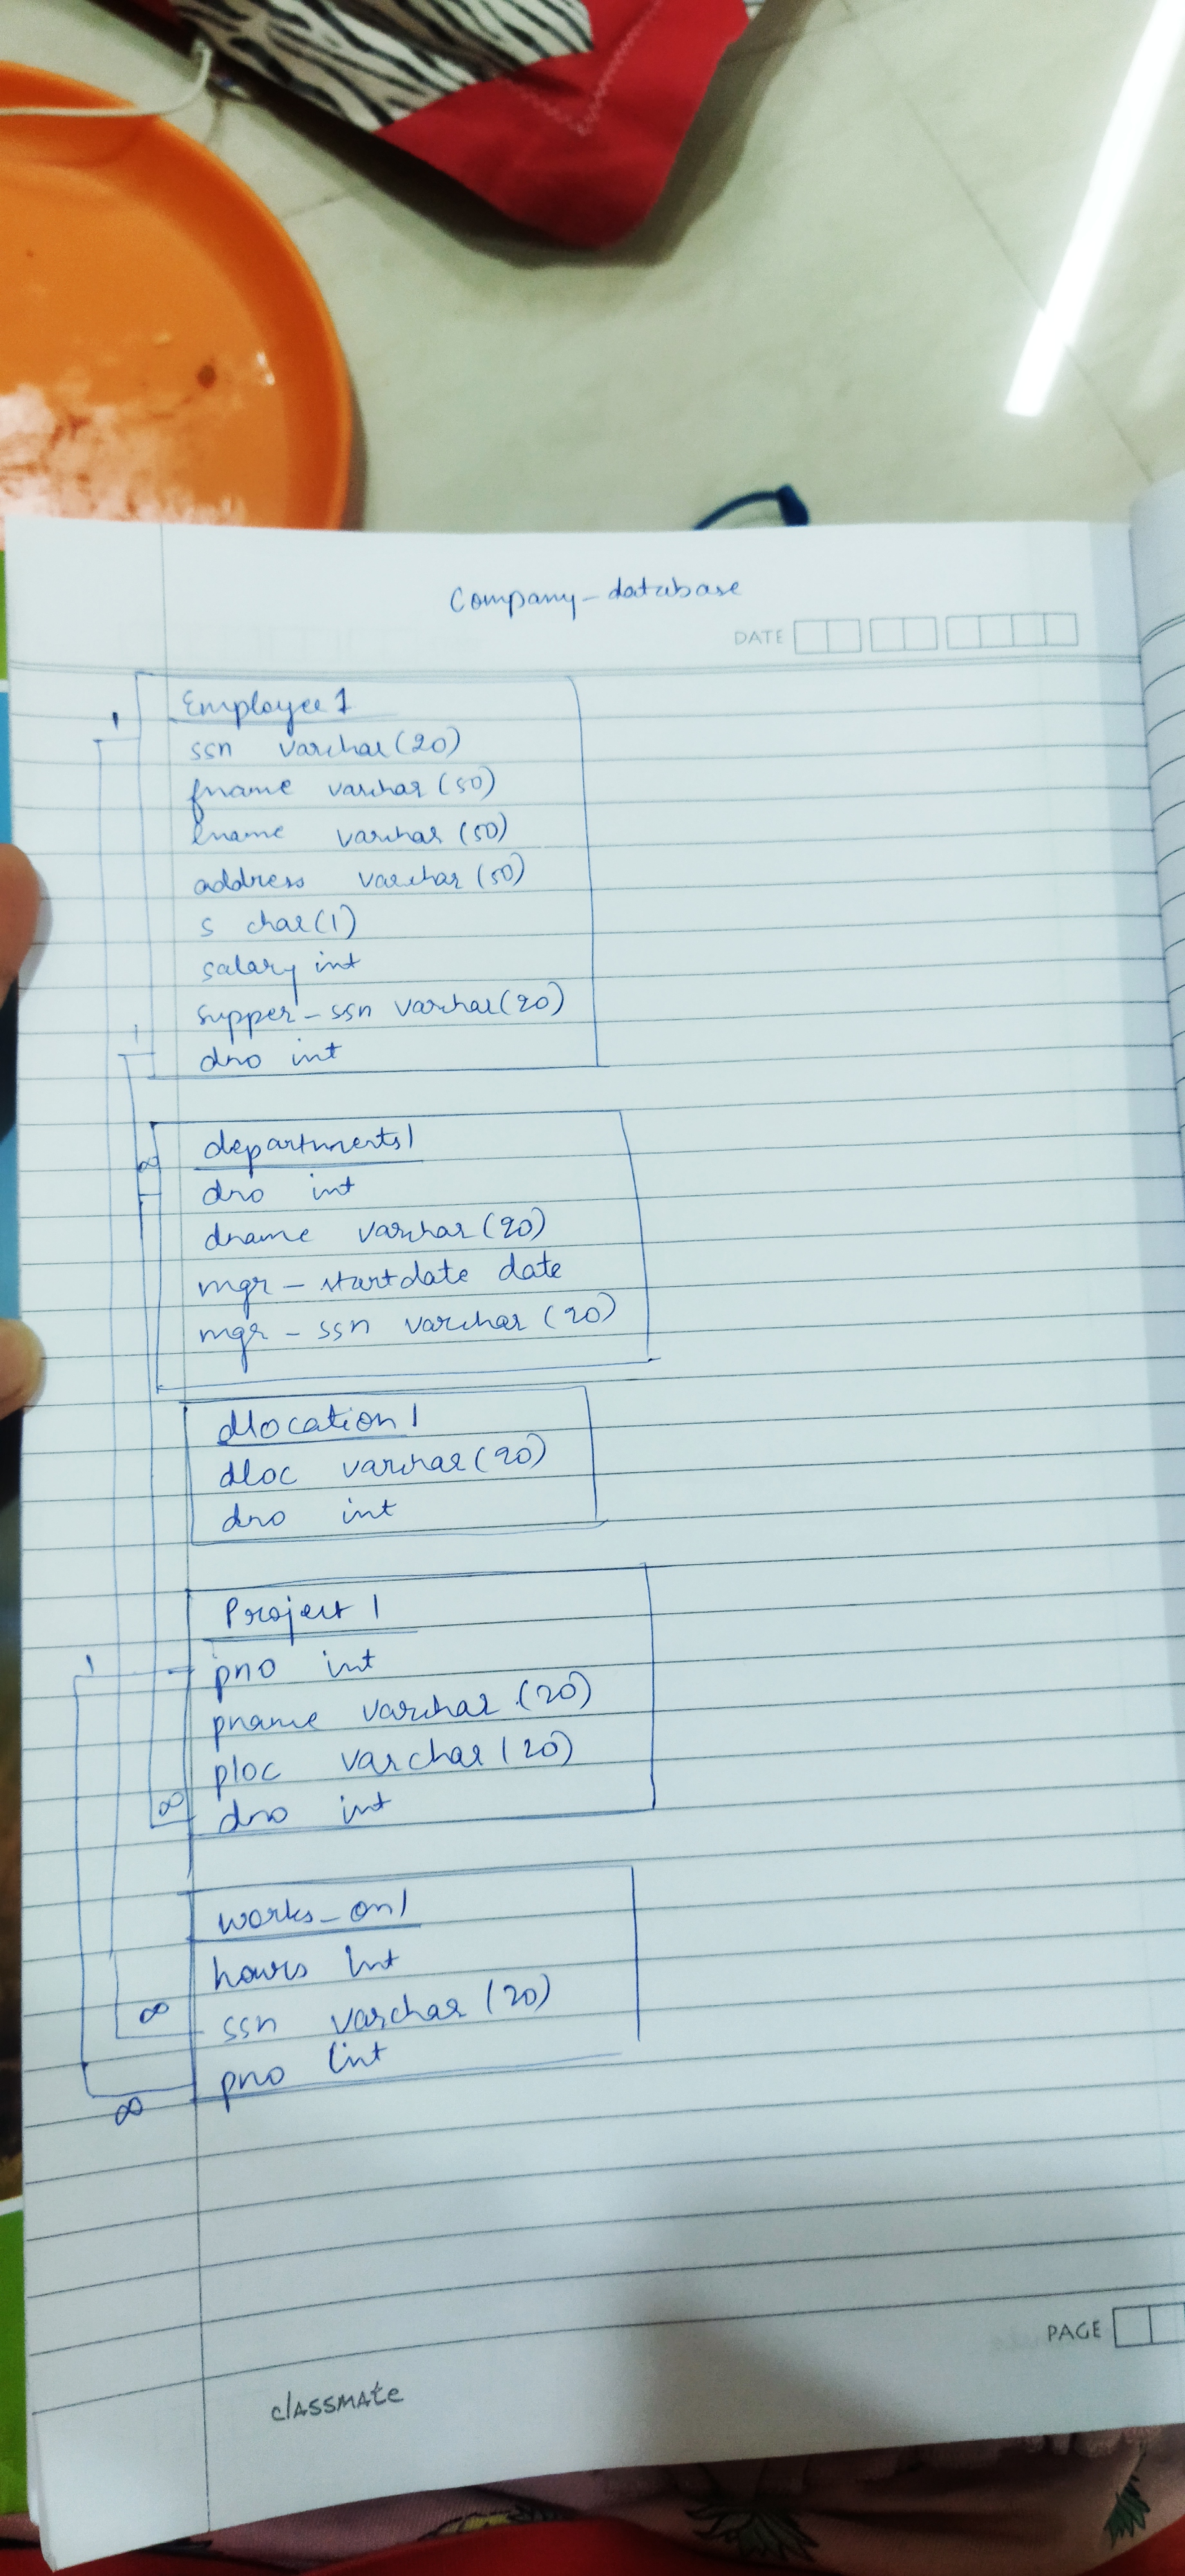 Company-database
DATE
1
Employee 1
ssn varchar(20)
fname varchar (50)
lname varchar (50)
address varchar (50)
s char(1)
salary int
supper-ssn varchar(20)
1
dno int
departments1
∞
dno int
dname varchar (20)
mgr - startdate date
mgr - ssn varchar (20)
dlocation 1
dloc varchar (20)
dno int
Project 1
1
pno int
pname varchar (20)
ploc varchar (20)
∞
dno int
works_on1
hours int
∞
ssn varchar (20)
pno int
∞
PAGE
classmate